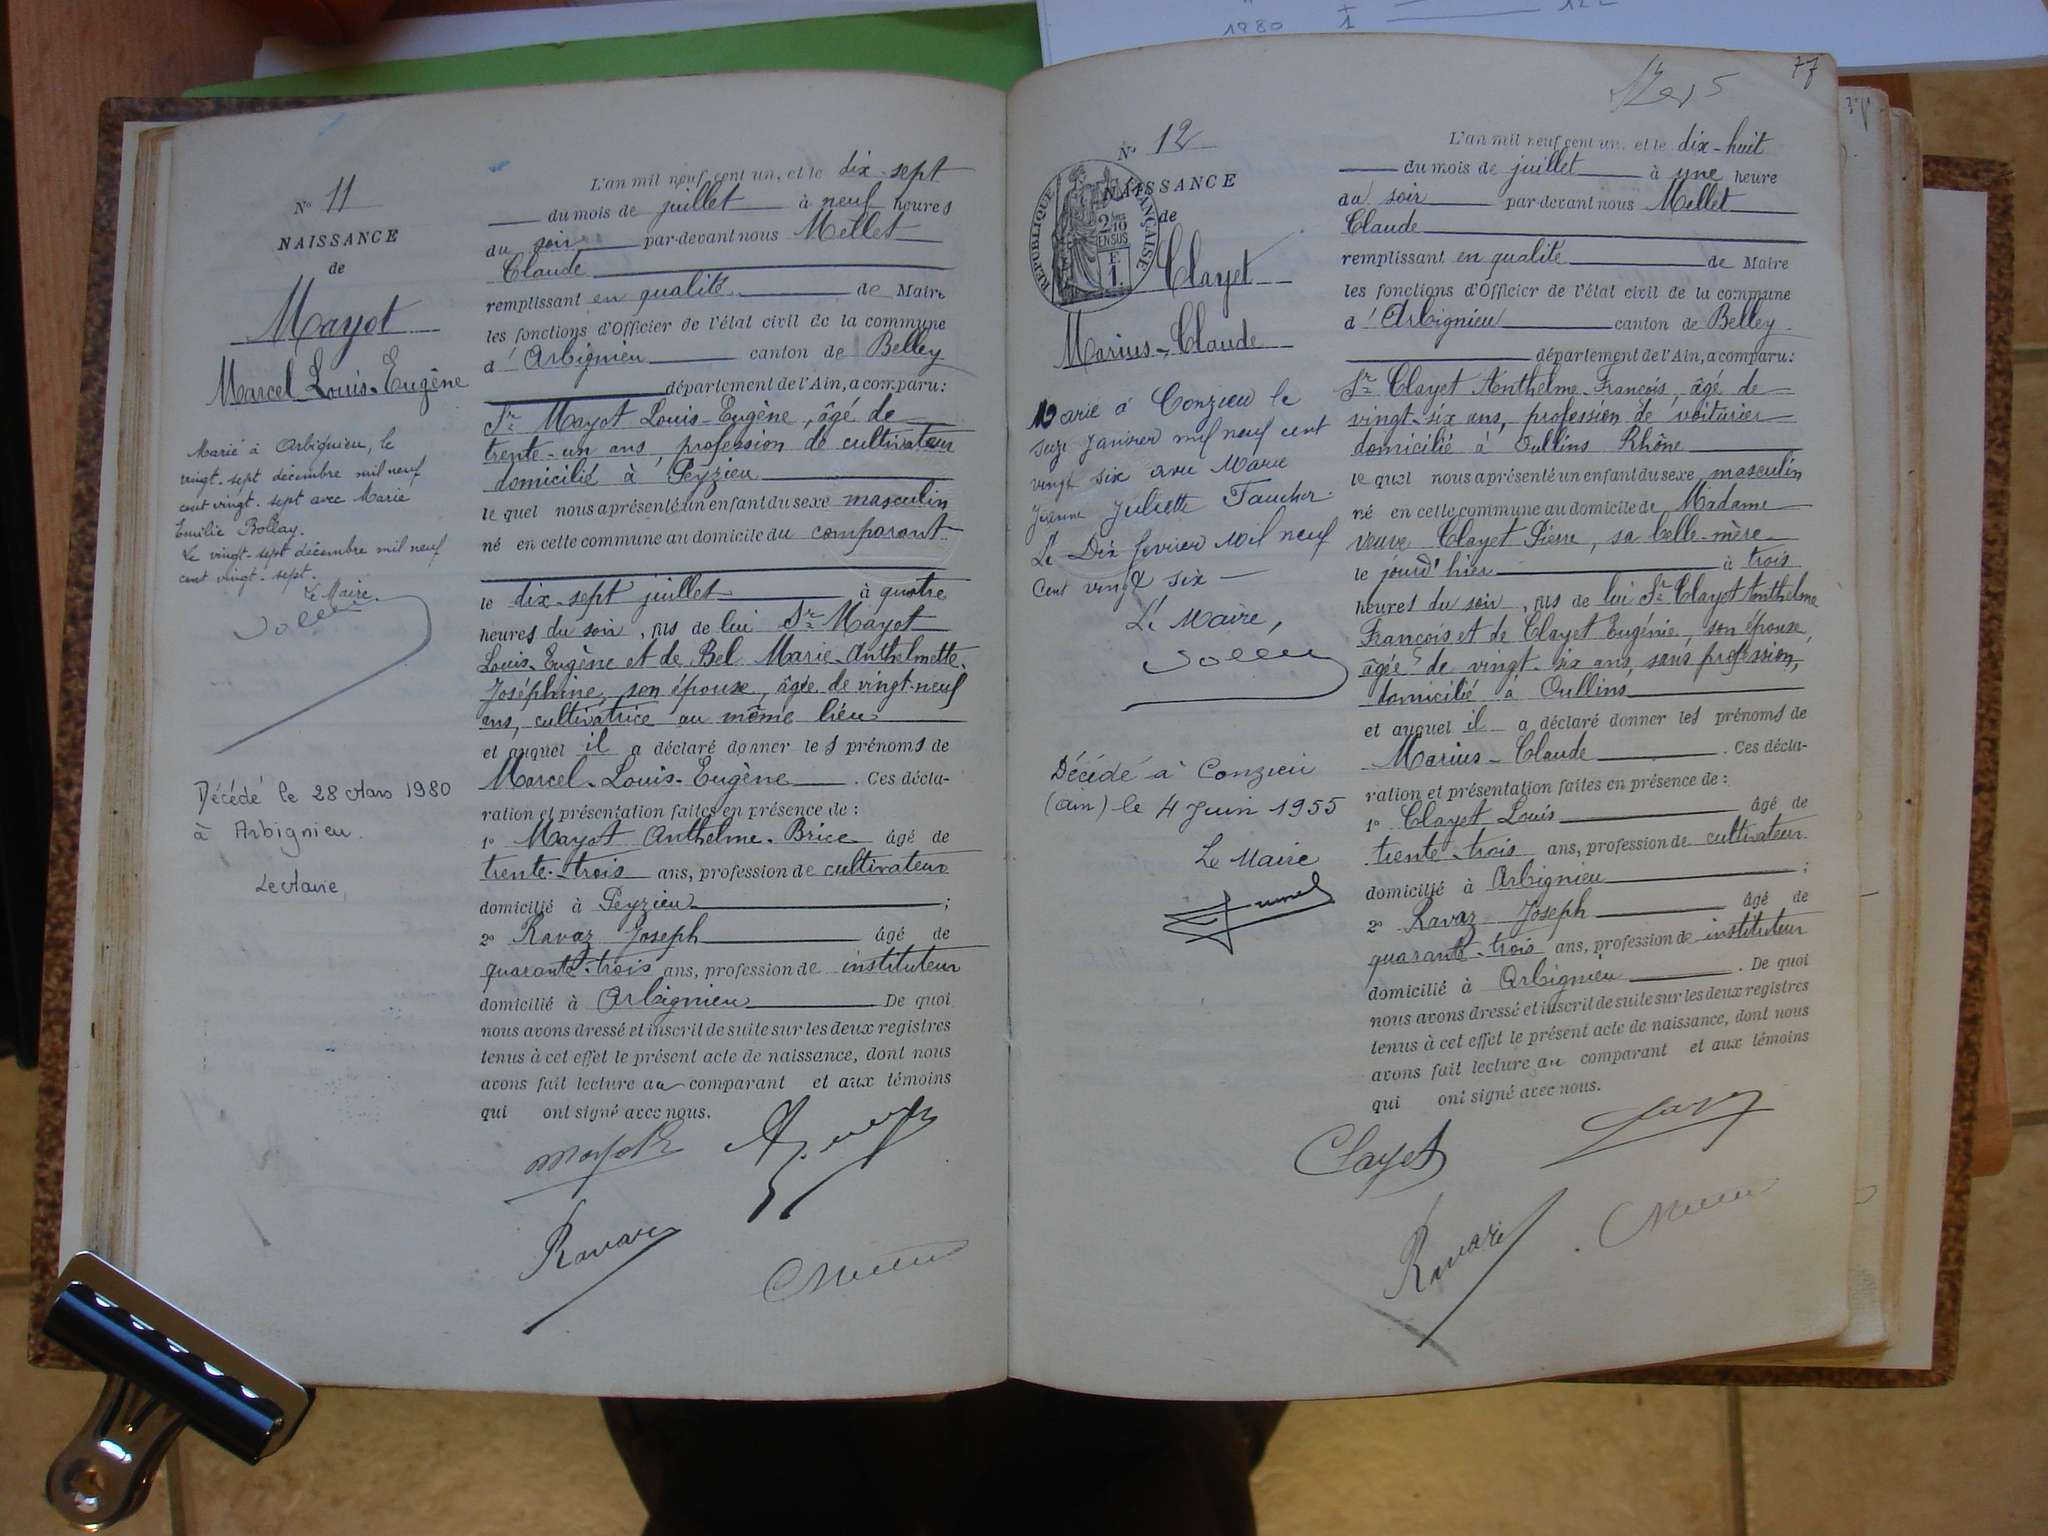 1980
N° 11
NAISSANCE
de
Mayot
Marcel Louis-Eugène
Marié à Arbignieu, le
vingt-sept décembre mil neuf
cent vingt-sept avec Marie
Emilie Bollay.
Le vingt-sept décembre mil neuf
cent vingt-sept.
Le Maire.
Décédé le 28 Mars 1980
à Arbignieu.
Le Maire,
L'an mil neuf cent un, et le dix-sept
du mois de juillet à neuf heures
du soir par-devant nous Mellet
Claude
remplissant en qualité de Maire
les fonctions d'Officier de l'état civil de la commune
d'Arbignieu canton de Belley
département de l'Ain, a comparu:
Sr Mayot Louis-Eugène, âgé de
trente-un ans, profession de cultivateur
domicilié à Peyzieu
le quel nous a présenté un enfant du sexe masculin
né en cette commune au domicile du comparant
le dix-sept juillet à quatre
heures du soir, fils de lui Sr Mayot
Louis-Eugène et de Bel Marie-Anthelmette-
Joséphine, son épouse, âgée de vingt-neuf
ans, cultivatrice au même lieu
et auquel il a déclaré donner les prénoms de
Marcel-Louis-Eugène. Ces décla-
ration et présentation faites en présence de :
1° Mayot Anthelme-Brice âgé de
trente-trois ans, profession de cultivateur
domicilié à Peyzieu ;
2° Ravaz Joseph âgé de
quarante-trois ans, profession de instituteur
domicilié à Arbignieu De quoi
nous avons dressé et inscrit de suite sur les deux registres
tenus à cet effet le présent acte de naissance, dont nous
avons fait lecture au comparant et aux témoins
qui ont signé avec nous.
Mayot
Ravaz
77
N° 12
NAISSANCE
de
RÉPUBLIQUE FRANÇAISE
2/10
EN SUS
F.
1.
Clayet
Marius-Claude
Marié à Conzieu le
seize Janvier mil neuf cent
vingt six avec Marie
Jeanne Juliette Faucher
Le Dix fevrier Mil neuf
cent vingt six
Le Maire,
Décédé à Conzieu
(Ain) le 4 Juin 1955
Le Maire
L'an mil neuf cent un, et le dix-huit
du mois de juillet à une heure
du soir par-devant nous Mellet
Claude
remplissant en qualité de Maire
les fonctions d'Officier de l'état civil de la commune
d'Arbignieu canton de Belley
département de l'Ain, a comparu:
Sr Clayet Anthelme-François, âgé de
vingt-six ans, profession de voiturier
domicilié à Oullins Rhône
le quel nous a présenté un enfant du sexe masculin
né en cette commune au domicile de Madame
veuve Clayet Pierre, sa belle-mère
le jourd'hier à trois
heures du soir, fils de lui Sr Clayet Anthelme
François et de Clayet Eugénie, son épouse,
âgée de vingt-six ans, sans profession,
domicilié à Oullins
et auquel il a déclaré donner les prénoms de
Marius-Claude. Ces décla-
ration et présentation faites en présence de :
1° Clayet Louis âgé de
trente-trois ans, profession de cultivateur
domicilié à Arbignieu ;
2° Ravaz Joseph âgé de
quarante-trois ans, profession de instituteur
domicilié à Arbignieu. De quoi
nous avons dressé et inscrit de suite sur les deux registres
tenus à cet effet le présent acte de naissance, dont nous
avons fait lecture au comparant et aux témoins
qui ont signé avec nous.
Clayet
Ravaz